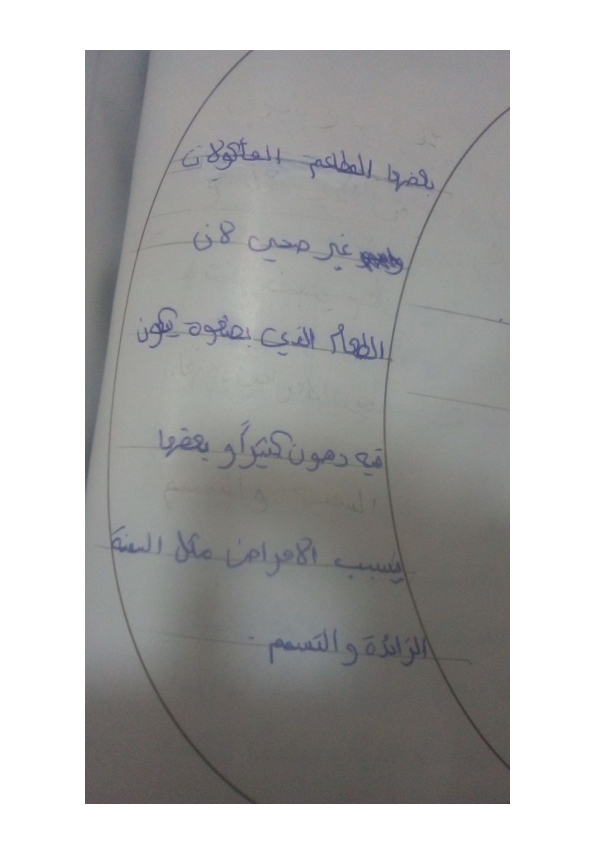 بعضها المطاعم المأكولات
غير صحي لان
الطعام الذي بصنعوه يكون
فيه دهون كثيراً و بعضها
يسبب الامراض مثل السمنة
الزائدة والتسمم .